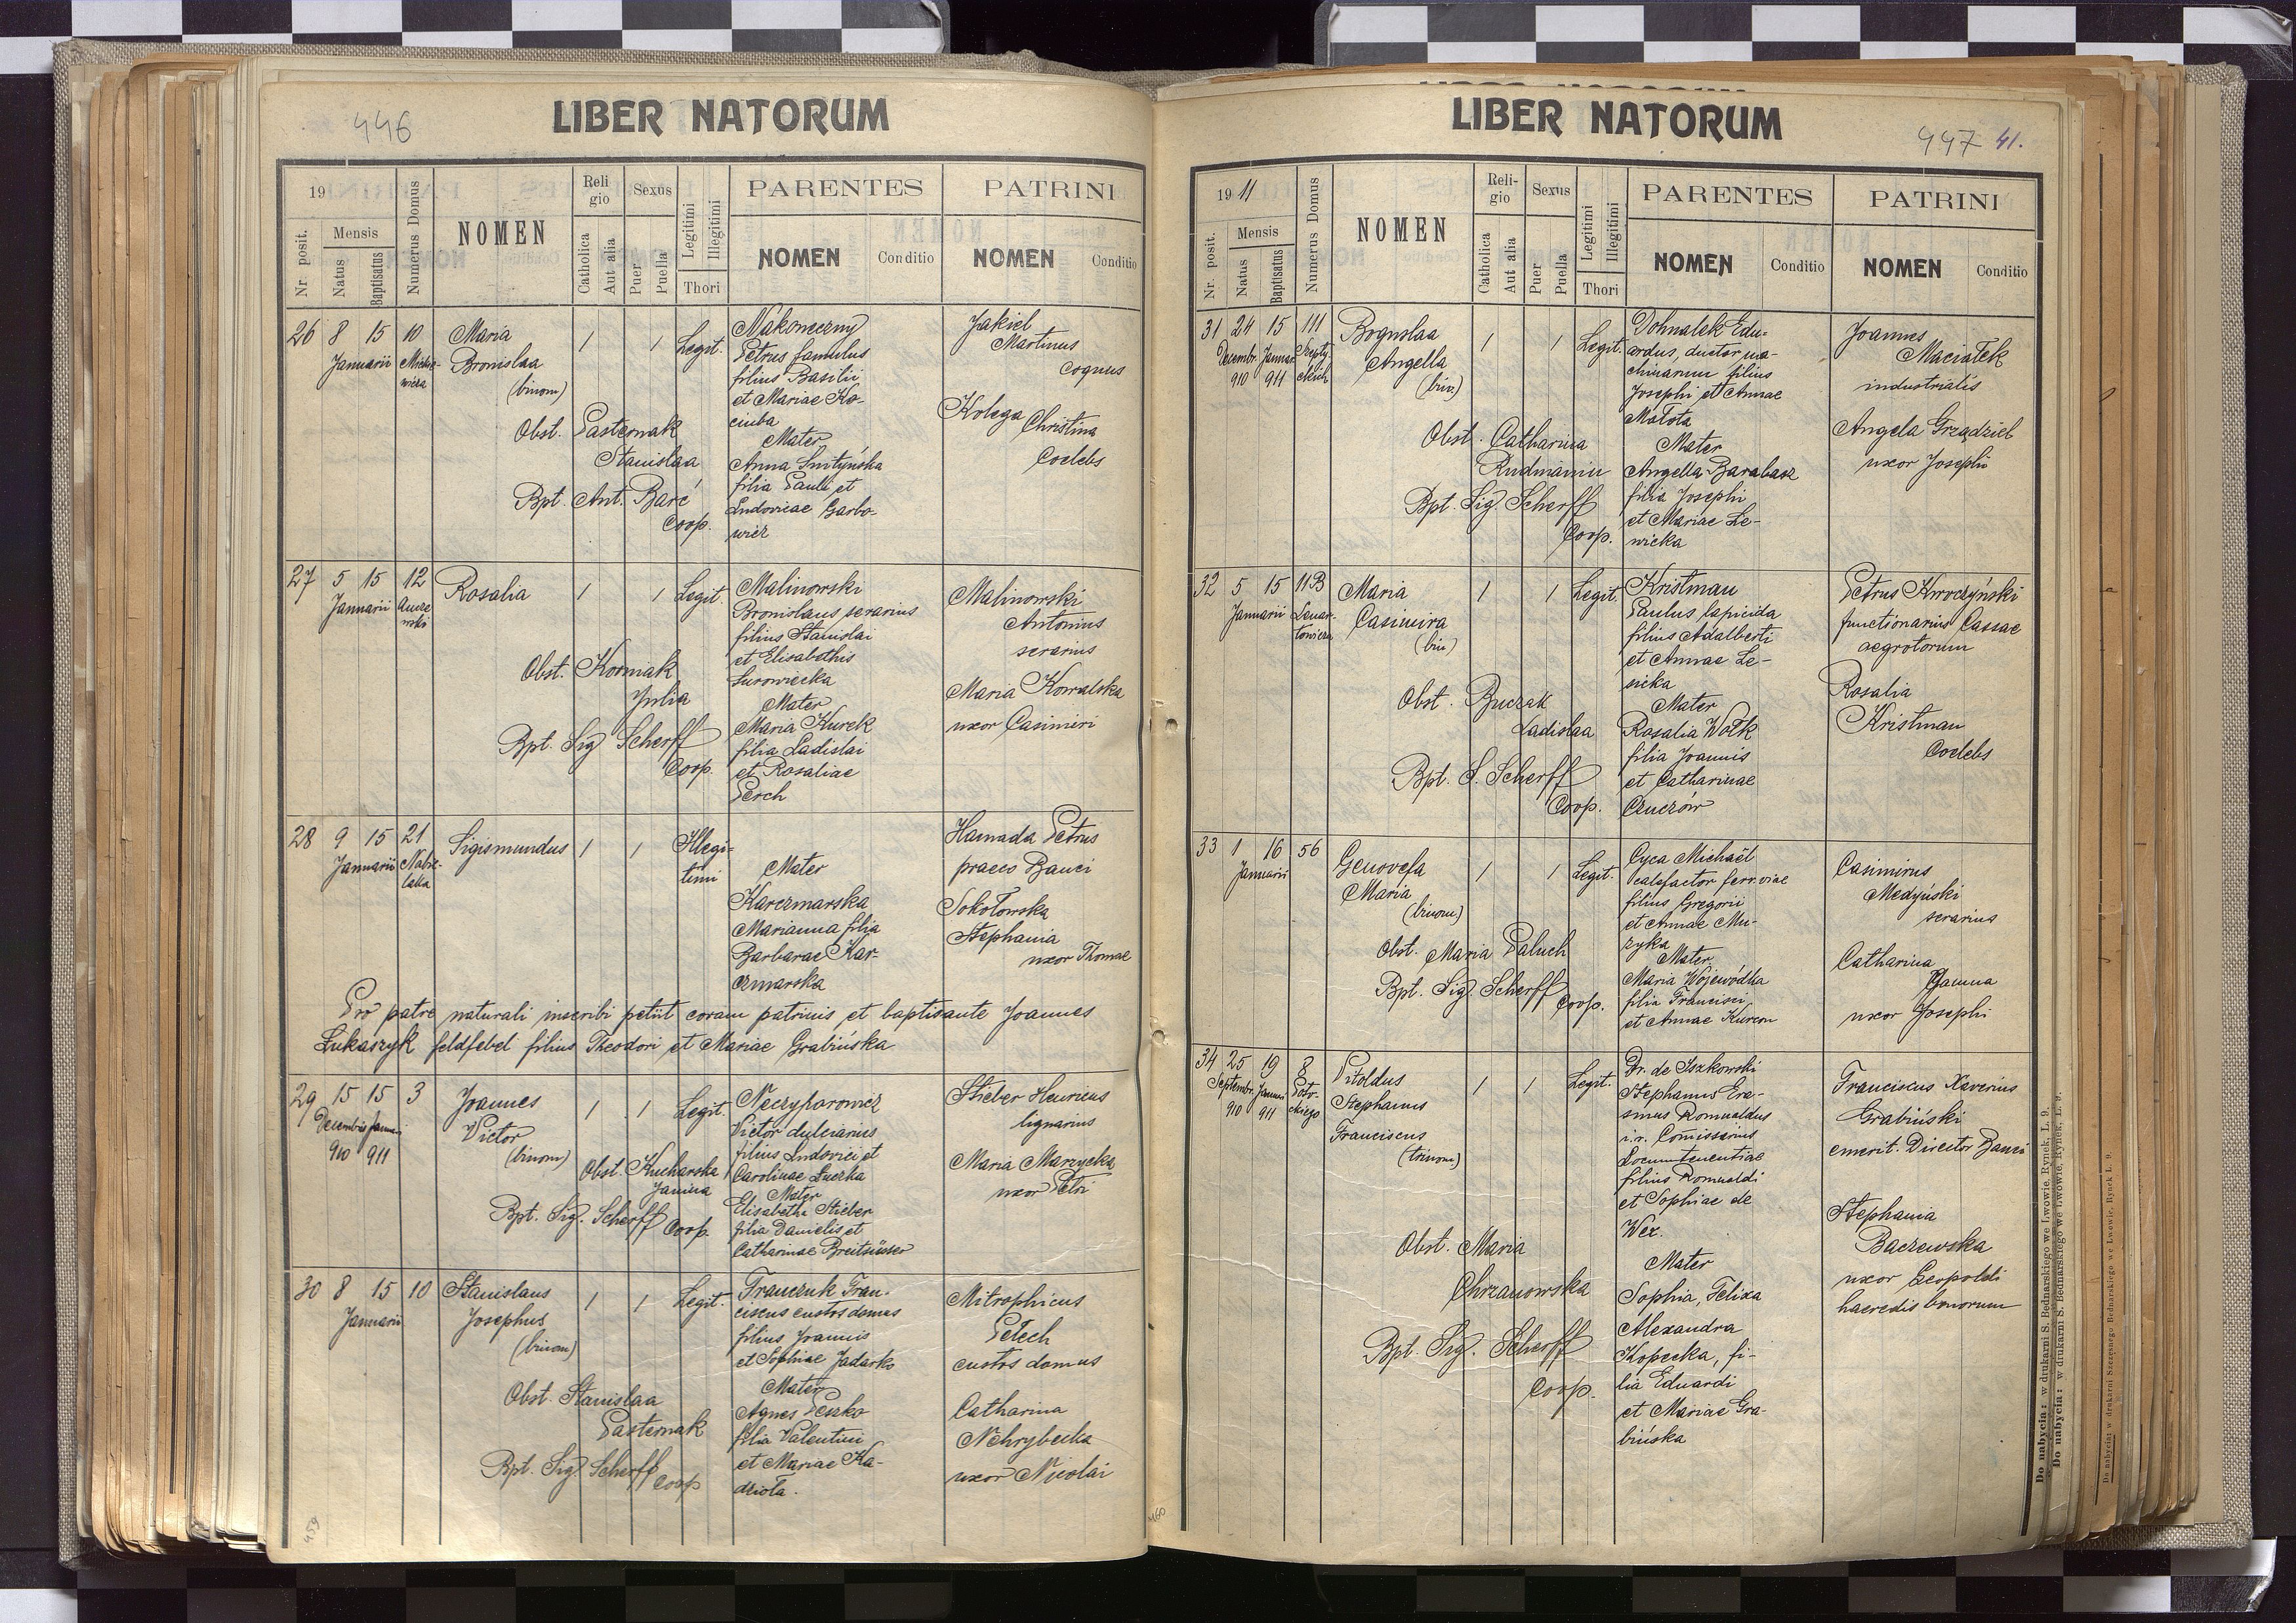 446
LIBER NATORUM
19
Nr. posit.
Mensis
Natus
Baptisatus
Numerus Domus
NOMEN
Religio
Catholica
Aut alia
Sexus
Puer
Puella
Legitimi
Illegitimi
Thori
PARENTES
NOMEN
Conditio
PATRINI
NOMEN
Conditio
26 8 15 10
Januarii
Maria
Bronislaa
(binom)
1 1 Legit.
Obst. Pasternak
Stanislaa
Bpt. Ant. Baré
Coop.
Nakoneczny
Petrus famulus
filius Basilii
et Mariae Ko-
ciuba
Mater
Anna Smityńska
filia Pauli et
Ludovicae Garbo-
wicz
Jakiel
Martinus
coquus
Kolega
Christina
Coelebs
27 5 15 12
Januarii
Rosalia
1 1 Legit.
Obst. Korniak
Julia
Bpt. Sig. Scherff
Coop.
Malinowski
Bronislaus serarius
filius Stanislai
et Elisabethis
Surowiecka
Mater
Maria Kurek
filia Ladislai
et Rosaliae
Perch
Malinowski
Antonius
serarius
Maria Kowalska
uxor Casimiri
28 9 15 21
Januarii
Sigismundus
1 1 Illegi-
timi
Mater
Karczmarska
Marianna filia
Barbarae Kar-
czmarska
Hamada Petrus
praeco Banci
Sokołowska
Stephania
uxor Thomae
Pro patre naturali inscribi petiit coram patrinis et baptisante Joannes
Łukaszyk feldfebel filius Theodori et Mariae Grabińska
29 15 15 3
Decembris Januarii
910 911
Joannes
Victor
(binom)
1 1 Legit.
Obst. Kucharska
Janina
Bpt. Sig. Scherff Coop.
Neczyporowicz
Victor dulciarius
filius Ludovici et
Carolinae Łuczka
Mater
Elisabetha Stieber
filia Danielis et
Catharinae Breitsüsser
Stieber Henricus
lignarius
Maria Marzycka
uxor Petri
30 8 15 10
Januarii
Stanislaus
Josephus
(binom)
1 1 Legit.
Obst. Stanislaa
Pasternak
Bpt. Sig. Scherff
Coop
Franczuk Fran-
ciscus custos domus
filius Joannis
et Sophiae Jadarko
Mater
Agnes Peszko
filia Valentini
et Mariae Ka-
dziota.
Mitrophicus
Petech
custos domus
Catharina
Nehrybecka
uxor Nicolai
459
LIBER NATORUM
447 41.
19 11
Nr. posit.
Mensis
Natus
Baptisatus
Numerus Domus
NOMEN
Reli-gio
Catholica
Aut alia
Sexus
Puer
Puella
Legitimi
Illegitimi
Thori
PARENTES
NOMEN
Conditio
PATRINI
NOMEN
Conditio
31 24 15 111
Decembr. Januar.
910 911
Szepty-
ckich
Boguslaa
Angella
(bin.)
1 1 Legit.
Obst. Catharina
Bpt. Sig. Scherff
Coop.
Dohnalek Edu-
ardus, ductor ma-
chinarum filius
Josephi et Annae
Małota
Mater
Angella Barabasz
filia Josephi
et Mariae Le-
wicka
Joannes
Maciałek
industrialis
Angela Grządziel
uxor Josephi
32 5 15 11B
Januarii
Lenar-
towicza
Maria
Casimira
(bin)
1 1 Legit.
Obst. Buczak
Ladislaa
Bpt. S. Scherff
Coop.
Kristman
Paulus lapicida
filius Adalberti
et Annae Le-
sicka
Mater
Rosalia Wołk
filia Joannis
et Catharinae
Czuczów
Petrus Kwoczyński
functionarius Cassae
aegrotorum
Rosalia
Kristman
Coelebs
33 1 16 56
Januarii
Genovefa
Maria
(binom)
1 1 Legit.
Obst. Maria Paluch
Bpt. Sig. Scherff
Coop.
Cyca Michaël
calefactor ferr. viae
filius Gregorii
et Annae Mu-
zyka
Mater
Maria Wojewódka
filia Francisci
et Annae Kurcon
Casimirus
Medyński
serarius
Catharina
Jamna
uxor Josephi
34 25 19 8
Septembr. Januar
910 911
Poto-
ckiego
Vitoldus
Stephanus
Franciscus
(trinom)
1 1 Legit.
Obst. Maria
Chrzanowska
Bpt. Sig. Scherff
Coop.
Dr. de Iszkowski
Stephanus Era-
smus Romualdus
i.r. Comissarius
Locumtenentiae
filius Romualdi
et Sophiae de
Wex.
Mater
Sophia, Felixa
Alexandra
Kopecka, fi-
lia Eduardi
et Mariae Gra-
bińska
Franciscus Xaverius
Grabiński
emerit. Director Banci
Stephania
Baczewska
uxor Leopoldi
haeredis bonorum
460
Do nabycia: w drukarni S. Bednarskiego we Lwowie, Rynek, L. 9.
Do nabycia: w drukarni S. Bednarskiego we Lwowie, Rynek, L. 9.
Do nabycia: w drukarni Szczęsnego Bednarskiego we Lwowie, Rynek L. 9.